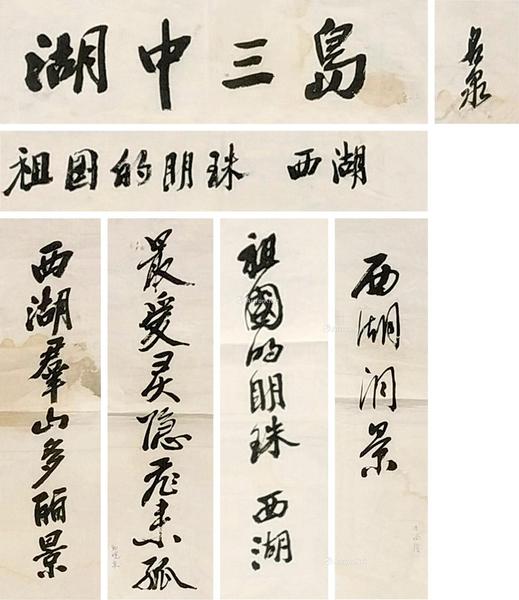 湖中三島
名泉
祖国的明珠 西湖
西湖羣山多丽景
最爱灵隐飛来孤
祖國的明珠 西湖
西湖洞景